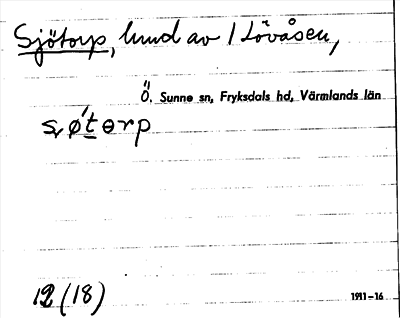 Sjötorp, hmd av 1 Lövåsen,
Ö. Sunne sn, Fryksdals hd, Värmlands län
12 (18)
1911–16